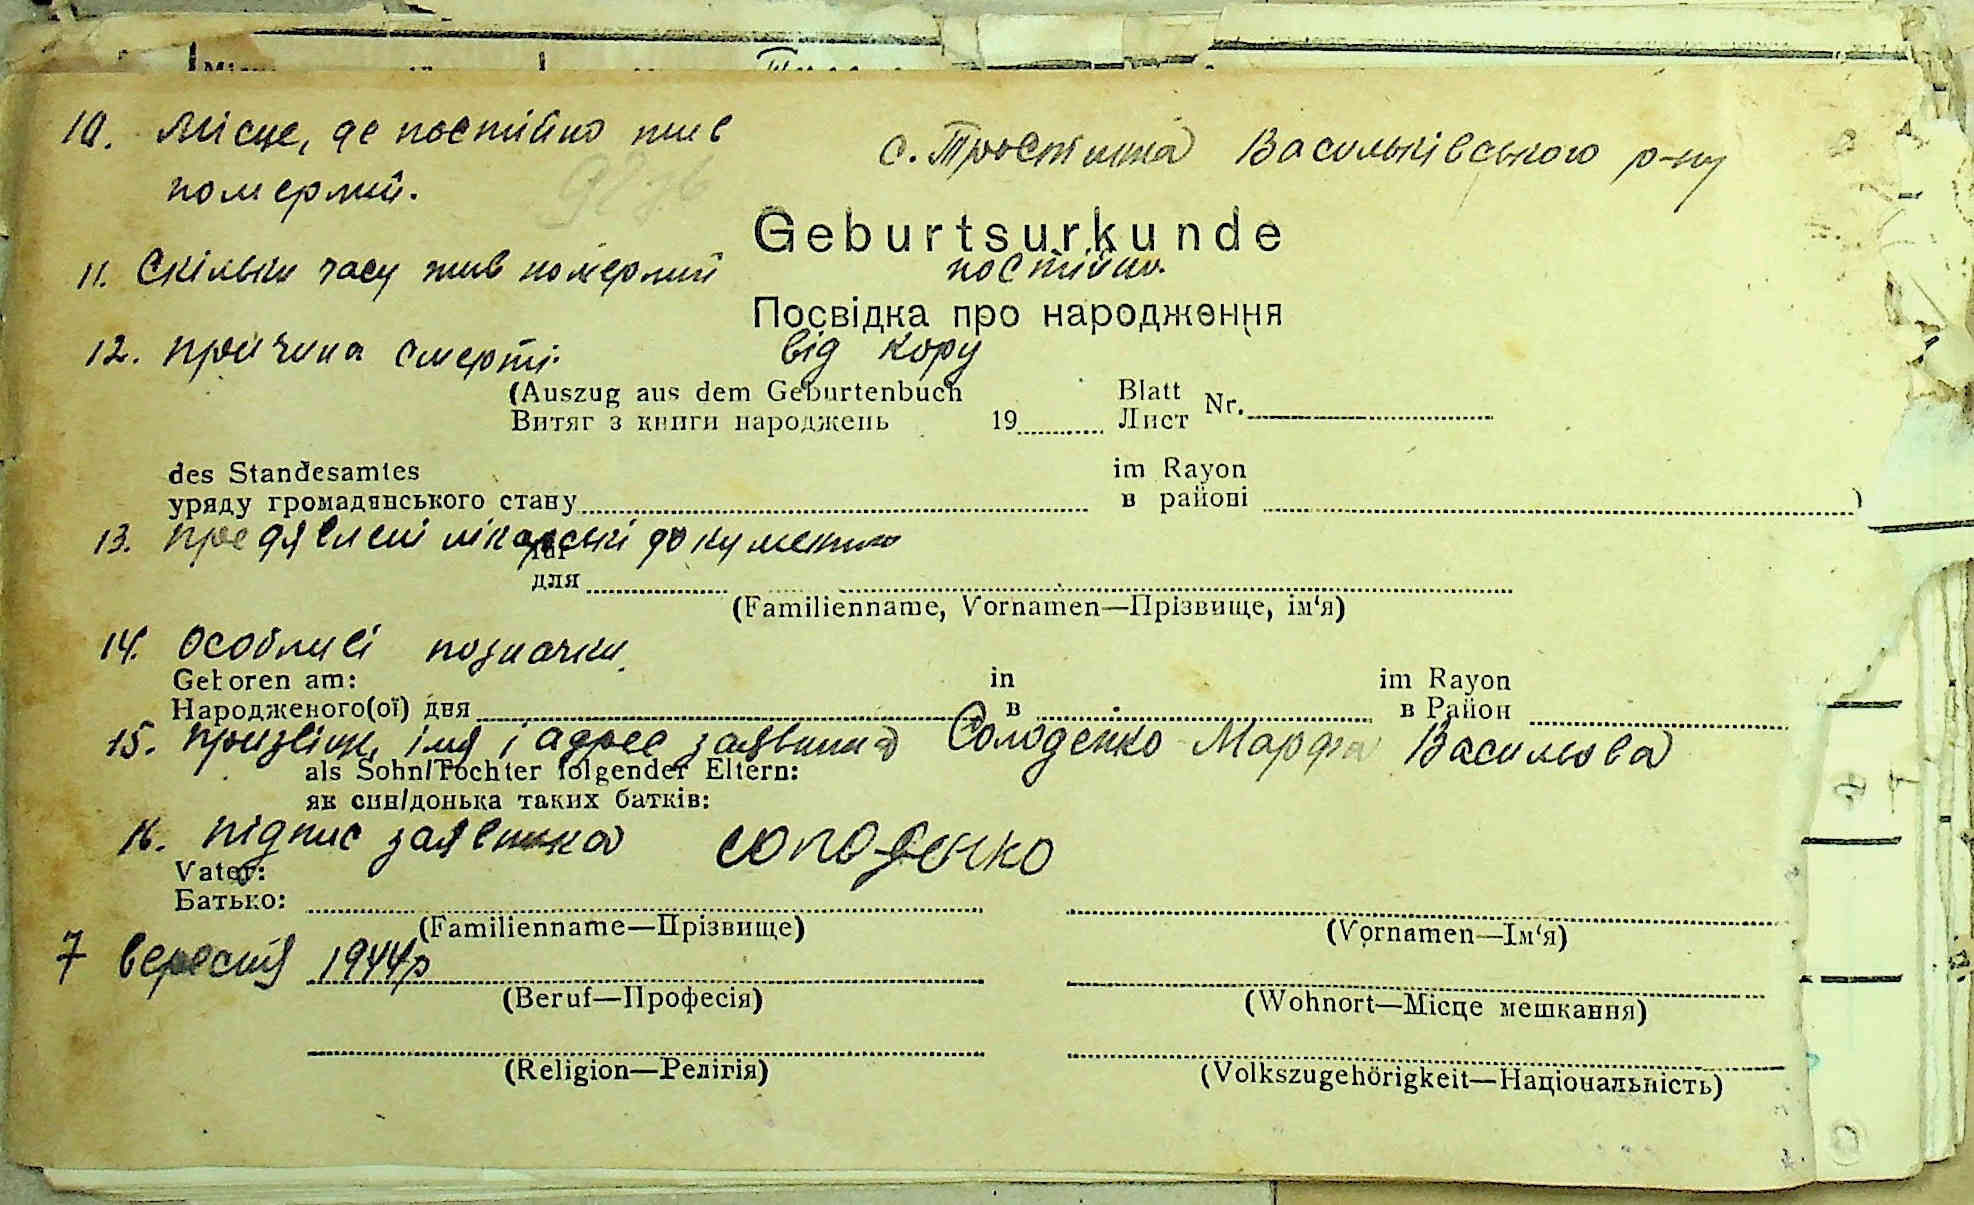 10. Місце, де постійно жив
с. Тростинка Васильківського р-ну
помермий.
Geburtsurkunde
11. Скільки часу жив помермий постійно.
Посвідка про народження
12. причина смерті. від кору
(Auszug aus dem Geburtenbuch Blatt
Витяг з книги народжень 19 Лист Nr.
des Standesamtes im Rayon
уряду громадянського стану в районі )
13. предявлені лікарські документи
für
для
(Familienname, Vornamen—Прізвище, ім'я)
14. Особливі позначки
Geboren am: in im Rayon
Народженого(ої) дня в в Район
15. призвіще, імя і адрес заявника Солоденко Марфа Васильова
als Sohn/Tochter folgender Eltern:
як син/донька таких батків:
16. підпис заявника солоденко
Vater:
Батько:
(Familienname—Прізвище) (Vornamen—Ім'я)
7 вересня 1944р
(Beruf—Професія) (Wohnort—Місце мешкання)
(Religion—Релігія) (Volkszugehörigkeit—Національність)